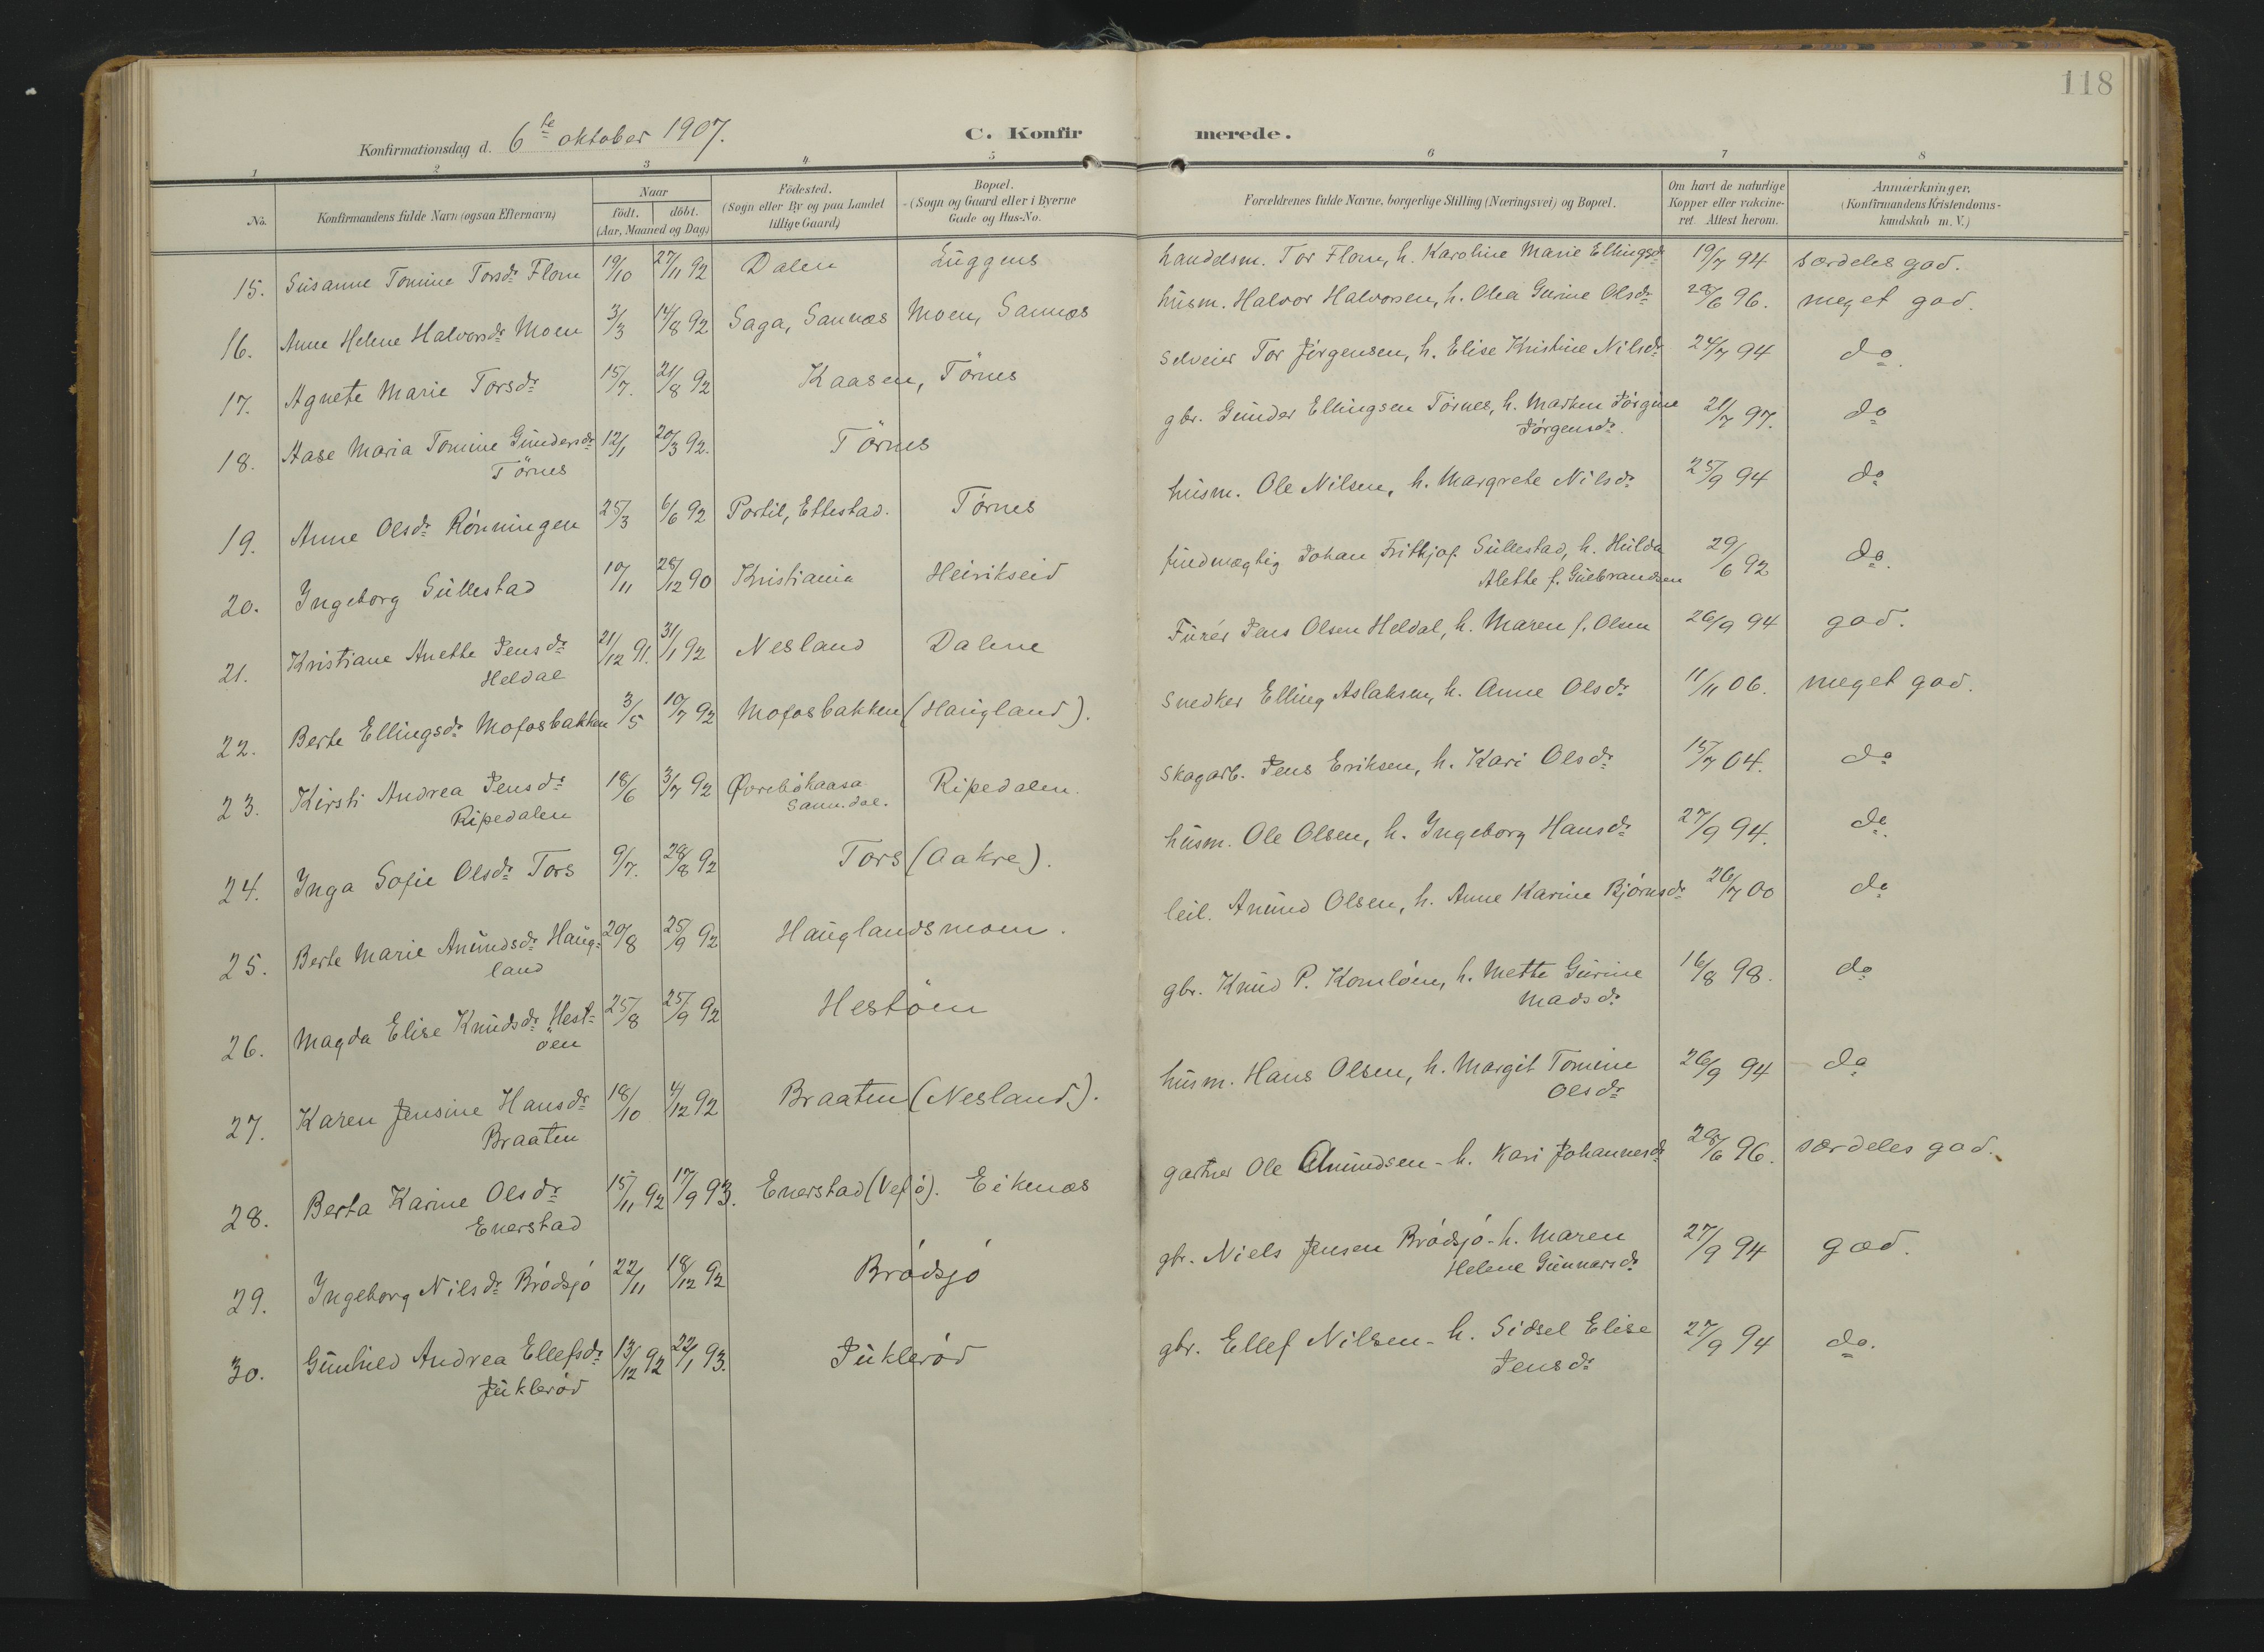 118
Konfirmationsdag d. 6te oktober 1907.
C. Konfirmerede.
1 2 3 4 5 6 7 8
No. Konfirmandens fulde Navn (ogsaa Efternavn) Naar født. døbt. (Aar, Maaned og Dag) Födested. (Sogn eller By og paa Landet tillige Gaard) Bopæl. (Sogn og Gaard eller i Byerne Gade og Hus-No. Forældrenes fulde Navne, borgerlige Stilling (Næringsvei) og Bopæl. Om havt de naturlige Kopper eller vakcineret. Attest herom. Anmærkninger. (Konfirmandens Kristendomskundskab m. V.)
15. Susanne Tomine Torsdr Flom 19/10 27/11 92 Dalen Luggens handelsm. Tor Flom, h. Karoline Marie Ellingsdr 19/7 94 særdeles god.
16. Anne Helene Halvorsdr Moen 3/3 14/8 92 Saga, Sannæs Moen, Sannæs husm. Halvor Halvorsen, h. Olea Gurine Olsdr 28/6 96. meget god.
17. Agnete Marie Torsdr 15/7. 21/8 92 Kaasen, Törnes selveier Tor Jörgensen, h. Elise Kristine Nilsdr 24/7 94 do.
18. Aase Maria Tomine Gundersdr 12/1 20/3 92. Törnes gbr. Gunder Ellingsen Törnes, h. Marthen Jörgine 21/7 97. do
Törnes Jörgensdr.
19. Anne Olsdr Rönningen 25/3 6/6 92 Portil, Ettestad. Törnes husm. Ole Nilsen, h. Margrete Nilsdr 25/9 94 do
20. Ingeborg Süllestad 10/11 28/12 90 Kristiania Heirikseid fuldmægtig Johan Frithjof Süllestad, h. Hulda 29/6 92 do.
Alette f. Gulbrandsen
21. Kristiane Anette Jensdr 21/12 91. 31/1 92 Nesland Dalene Furér Jens Olsen Heldal, h. Maren f. Olsen 26/9 94 god.
Heldal
22. Berte Ellingsdr Mofosbakken 3/5 10/7 92 Mofosbakken (Haugland). snedker Elling Aslaksen, h. Anne Olsdr 11/11 06. meget god.
23. Kirsti Andrea Jensdr 18/6 3/7 92 Øvrebökaasa Ripedalen. skogarb. Jens Eriksen, h. Kari Olsdr 15/7 04. do
Ripedalen Sann.dal.
24. Inga Sofie Olsdr Tors 9/7. 28/8 92 Tors (Aakre). husm. Ole Olsen, h. Ingeborg Hansdr 27/9 94. do.
25. Berte Marie Anundsdr Haug- 20/8 25/9 92 Hauglandsmoen. leil. Anund Olsen, h. Anne Karine Björnsdr 26/7 00 do
land
26. Magda Elise Knudsdr Hest- 25/8 25/9 92 Hestöen gbr. Knud P. Kornlöen, h. Mette Gurine 16/8 98. do
öen Madsdr.
27. Karen Jensine Hansdr 18/10 4/12 92 Braaten (Nesland). husm. Hans Olsen, h. Margit Tomine 26/9 94 do
Braaten Olsdr
28. Berta Karine Olsdr 15/11 92 17/9 93. Enerstad (Vefjö). Eikenæs gartner Ole Amundsen - h. Kari Johannesdr 28/6 96. særdeles god.
Enerstad
29. Ingeborg Nilsdr Brödsjó 22/11 18/12 92 Brödsjó gbr. Niels Jensen Brödsjó - h. Maren 27/9 94 god.
Helene Gunnarsdr
30. Gunhild Andrea Ellefsdr 13/12 92 22/1 93. Jukleröd gbr. Ellef Nilsen - h. Sidsel Elise 27/9 94 do.
Jukleröd Jensdr